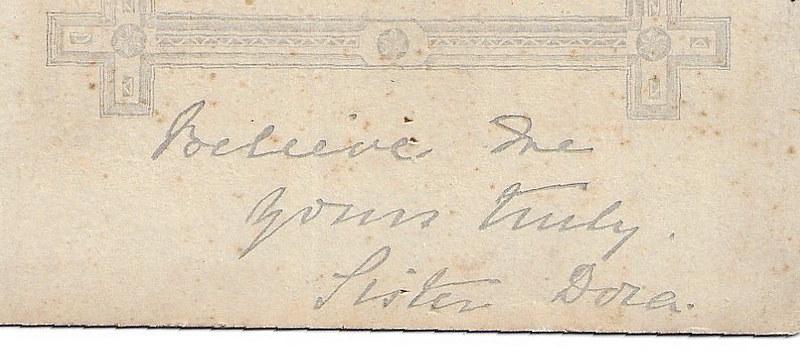 Believe me
Yours truly.
Sister Dora.